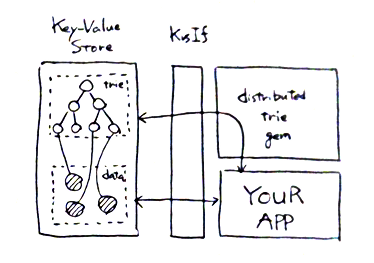 Key-Value
Store
KvsIf
trie
data
distributed
trie
gem
YOUR
APP